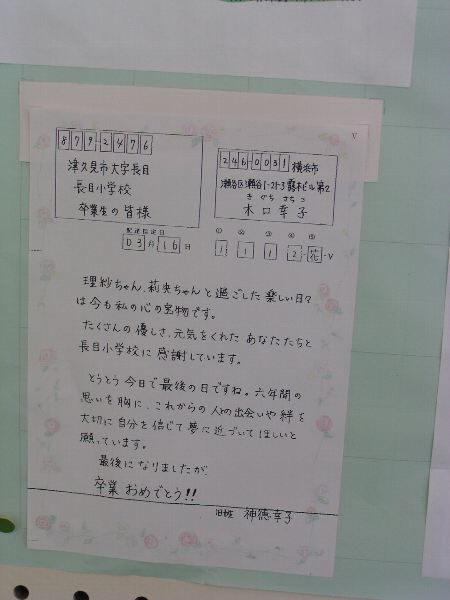 879-2476
津久見市大字長目
長目小学校
卒業生の皆様
V
246-0031 横浜市
瀬谷区瀬谷1-21-3 露木ビル第2
きのくち さちこ
木口幸子
配達指定日
03月16日
① ② ③ ④ ⑤
1 1 1 2-花-V
理紗ちゃん、莉央ちゃんと過ごした楽しい日々
は今も私の心の宝物です。
たくさんの優しさ、元気をくれたあなたたちと
長目小学校に感謝しています。
とうとう今日で最後の日ですね。六年間の
思いを胸に、これからの人の出会いや絆を
大切に自分を信じて夢に近づいてほしいと
願っています。
最後になりましたが、
卒業おめでとう!!
旧姓 神徳幸子